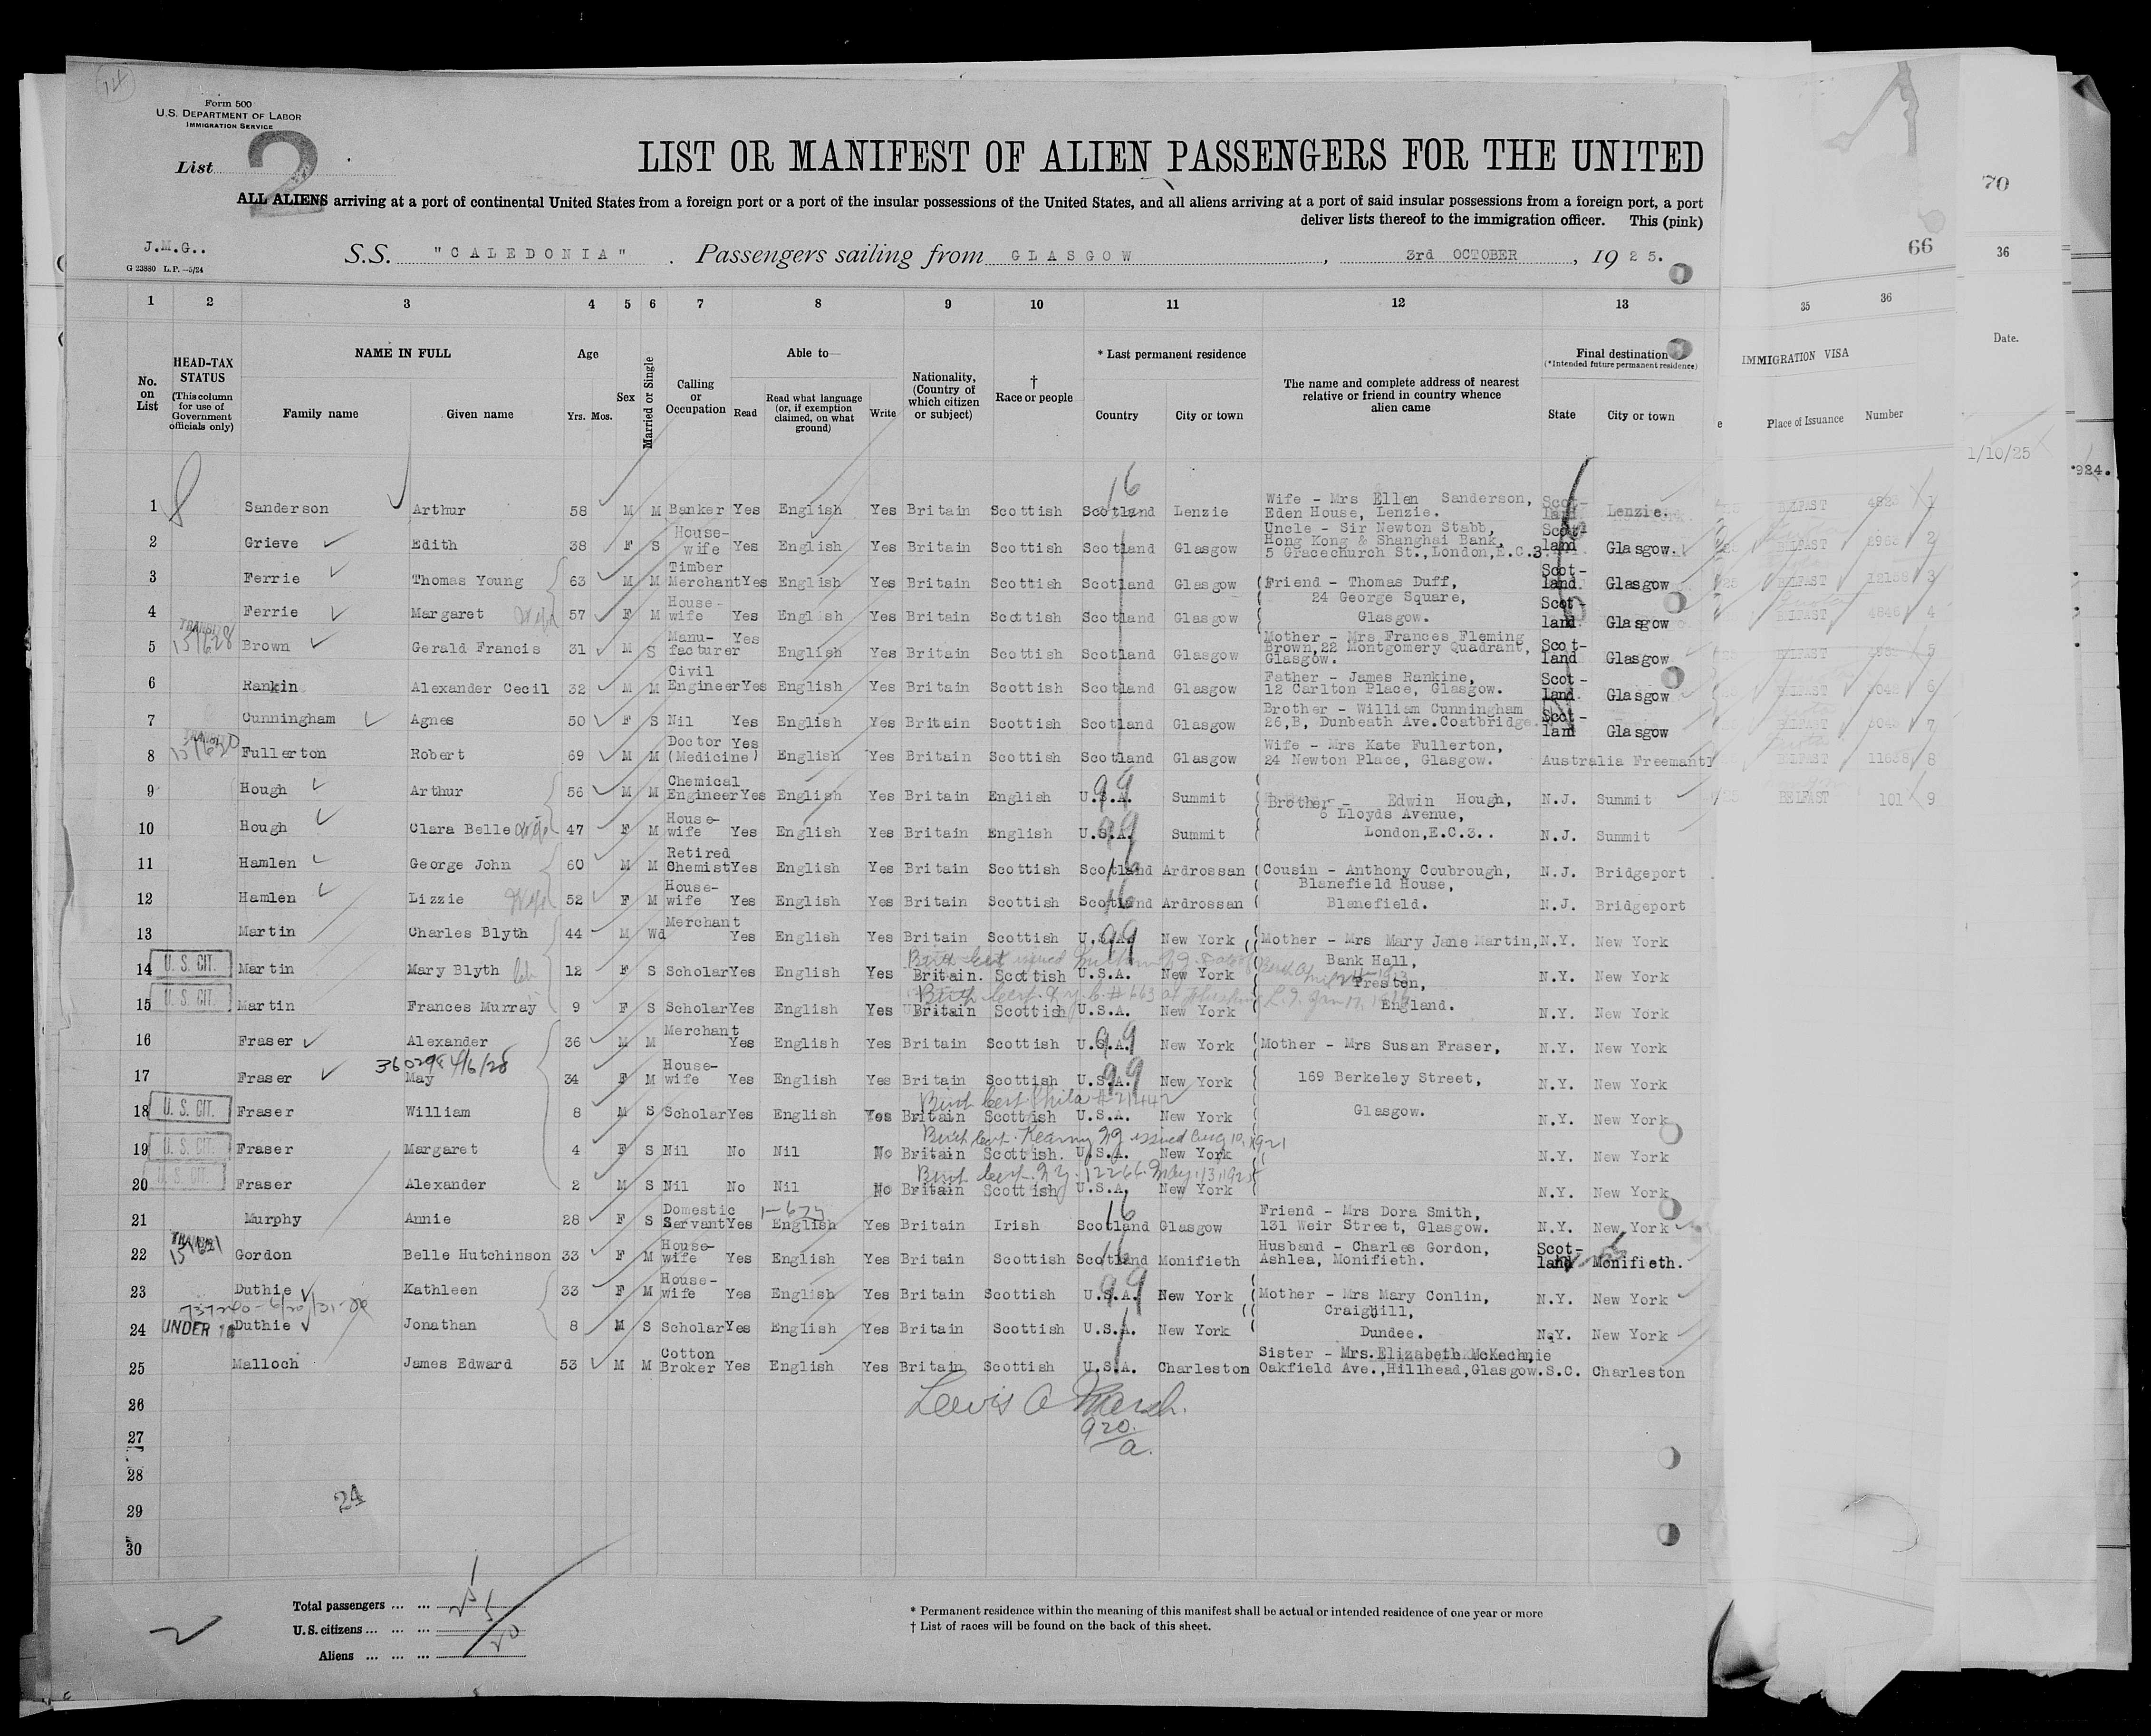 14
Form 500
U.S. DEPARTMENT OF LABOR
IMMIGRATION SERVICE
List 2
LIST OR MANIFEST OF ALIEN PASSENGERS FOR THE UNITED
ALL ALIENS arriving at a port of continental United States from a foreign port or a port of the insular possessions of the United States, and all aliens arriving at a port of said insular possessions from a foreign port, a port
deliver lists thereof to the immigration officer. This (pink)
J.M.G..
G 23880 L.P.—5/24
S.S. "CALEDONIA". Passengers sailing from GLASGOW, 3rd OCTOBER, 1925.
66
70
36
1 2 3 4 5 6 7 8 9 10 11 12 13 35 36
No. on List
HEAD-TAX STATUS (This column for use of Government officials only)
NAME IN FULL
Family name Given name
Age Yrs. Mos.
Sex
Married or Single
Calling or Occupation
Able to—
Read Read what language (or, if exemption claimed, on what ground) Write
Nationality, (Country of which citizen or subject)
† Race or people
* Last permanent residence
Country City or town
The name and complete address of nearest relative or friend in country whence alien came
Final destination (*Intended future permanent residence)
State City or town
IMMIGRATION VISA
Place of Issuance Number
Date.
1/10/25
924.
1 Sanderson Arthur 58 M M Banker Yes English Yes Britain Scottish Scotland Lenzie Wife - Mrs Ellen Sanderson, Eden House, Lenzie. Scotland Lenzie. BELFAST 1
2 Grieve Edith 38 F S House-wife Yes English Yes Britain Scottish Scotland Glasgow Uncle - Sir Newton Stabb, Hong Kong & Shanghai Bank, 5 Gracechurch St.,London,E.C.3 Scot-land Glasgow. BELFAST 2
3 Ferrie Thomas Young 63 M M Timber Merchant Yes English Yes Britain Scottish Scotland Glasgow Friend - Thomas Duff, Scot-land. Glasgow BELFAST 3
4 Ferrie Margaret Wife 57 F M House-wife Yes English Yes Britain Scottish Scotland Glasgow 24 George Square, Glasgow. Scot-land. Glasgow BELFAST 4846 4
TRANSIT 151628
5 Brown Gerald Francis 31 M S Manu-facturer Yes English Yes Britain Scottish Scotland Glasgow Mother - Mrs Frances Fleming Brown,22 Montgomery Quadrant, Glasgow. Scot-land Glasgow BELFAST 5
6 Rankin Alexander Cecil 32 M M Civil Engineer Yes English Yes Britain Scottish Scotland Glasgow Father - James Rankine, 12 Carlton Place, Glasgow. Scot-land. Glasgow BELFAST 6
7 Cunningham Agnes 50 F S Nil Yes English Yes Britain Scottish Scotland Glasgow Brother - William Cunningham 26,B, Dunbeath Ave.Coatbridge. Scot-land Glasgow BELFAST 7
151630
8 Fullerton Robert 69 M M Doctor (Medicine) Yes English Yes Britain Scottish Scotland Glasgow Wife - Mrs Kate Fullerton, 24 Newton Place, Glasgow. Australia Freemantl BELFAST 8
9 Hough Arthur 56 M M Chemical Engineer Yes English Yes Britain English U.S.A. Summit Brother - Edwin Hough, N.J. Summit BELFAST 101 9
10 Hough Clara Belle Wife 47 F M House-wife Yes English Yes Britain English U.S.A. Summit 6 Lloyds Avenue, London,E.C.3.. N.J. Summit
11 Hamlen George John 60 M M Retired Chemist Yes English Yes Britain Scottish Scotland Ardrossan Cousin - Anthony Coubrough, N.J. Bridgeport
12 Hamlen Lizzie Wife 52 F M House-wife Yes English Yes Britain Scottish Scotland Ardrossan Blanefield House, Blanefield. N.J. Bridgeport
13 Martin Charles Blyth 44 M Wd Merchant Yes English Yes Britain Scottish U.S.A. New York Mother - Mrs Mary Jane Martin, N.Y. New York
U. S. CIT.
14 Martin Mary Blyth 12 F S Scholar Yes English Yes Britain. Scottish U.S.A. New York Bank Hall, Preston, N.Y. New York
U. S. CIT.
Birth Cert. N.Y.C. #663 at Flushing L.I. Jan 17,
15 Martin Frances Murray 9 F S Scholar Yes English Yes Britain Scottish U.S.A. New York England. N.Y. New York
16 Fraser Alexander 36 M M Merchant Yes English Yes Britain Scottish U.S.A. New York Mother - Mrs Susan Fraser, N.Y. New York
360298 4/6/28
17 Fraser May 34 F M House-wife Yes English Yes Britain Scottish U.S.A. New York 169 Berkeley Street, N.Y. New York
Birth Cert Phila # 21442
U. S. CIT.
18 Fraser William 8 M S Scholar Yes English Yes Britain Scottish U.S.A. New York Glasgow. N.Y. New York
Birth Cert. Kearny NJ issued Aug 10, 1921
U. S. CIT.
19 Fraser Margaret 4 F S Nil No Nil No Britain Scottish. U.S.A. New York N.Y. New York
Birth Cert. N.Y. 12266 May 13, 1925
U. S. CIT.
20 Fraser Alexander 2 M S Nil No Nil No Britain Scottish U.S.A. New York N.Y. New York
21 Murphy Annie 28 F S Domestic Servant Yes English Yes Britain Irish Scotland Glasgow Friend - Mrs Dora Smith, 131 Weir Street, Glasgow. N.Y. New York
TRANSIT
22 Gordon Belle Hutchinson 33 F M House-wife Yes English Yes Britain Scottish Scotland Monifieth Husband - Charles Gordon, Ashlea, Monifieth. Scot-land Monifieth.
23 Duthie Kathleen 33 F M House-wife Yes English Yes Britain Scottish U.S.A. New York Mother - Mrs Mary Conlin, N.Y. New York
UNDER 16
24 Duthie Jonathan 8 M S Scholar Yes English Yes Britain Scottish U.S.A. New York Craighill, Dundee. N.Y. New York
25 Malloch James Edward 53 M M Cotton Broker Yes English Yes Britain Scottish U.S.A. Charleston Sister - Mrs.Elizabeth McKechnie Oakfield Ave.,Hillhead,Glasgow. S.C. Charleston
26
Lewis A Marsh.
920
a.
27
28
29
24
30
Total passengers ... ... 25
U.S. citizens ... ... ... 5
Aliens ... ... ... 20
* Permanent residence within the meaning of this manifest shall be actual or intended residence of one year or more
† List of races will be found on the back of this sheet.